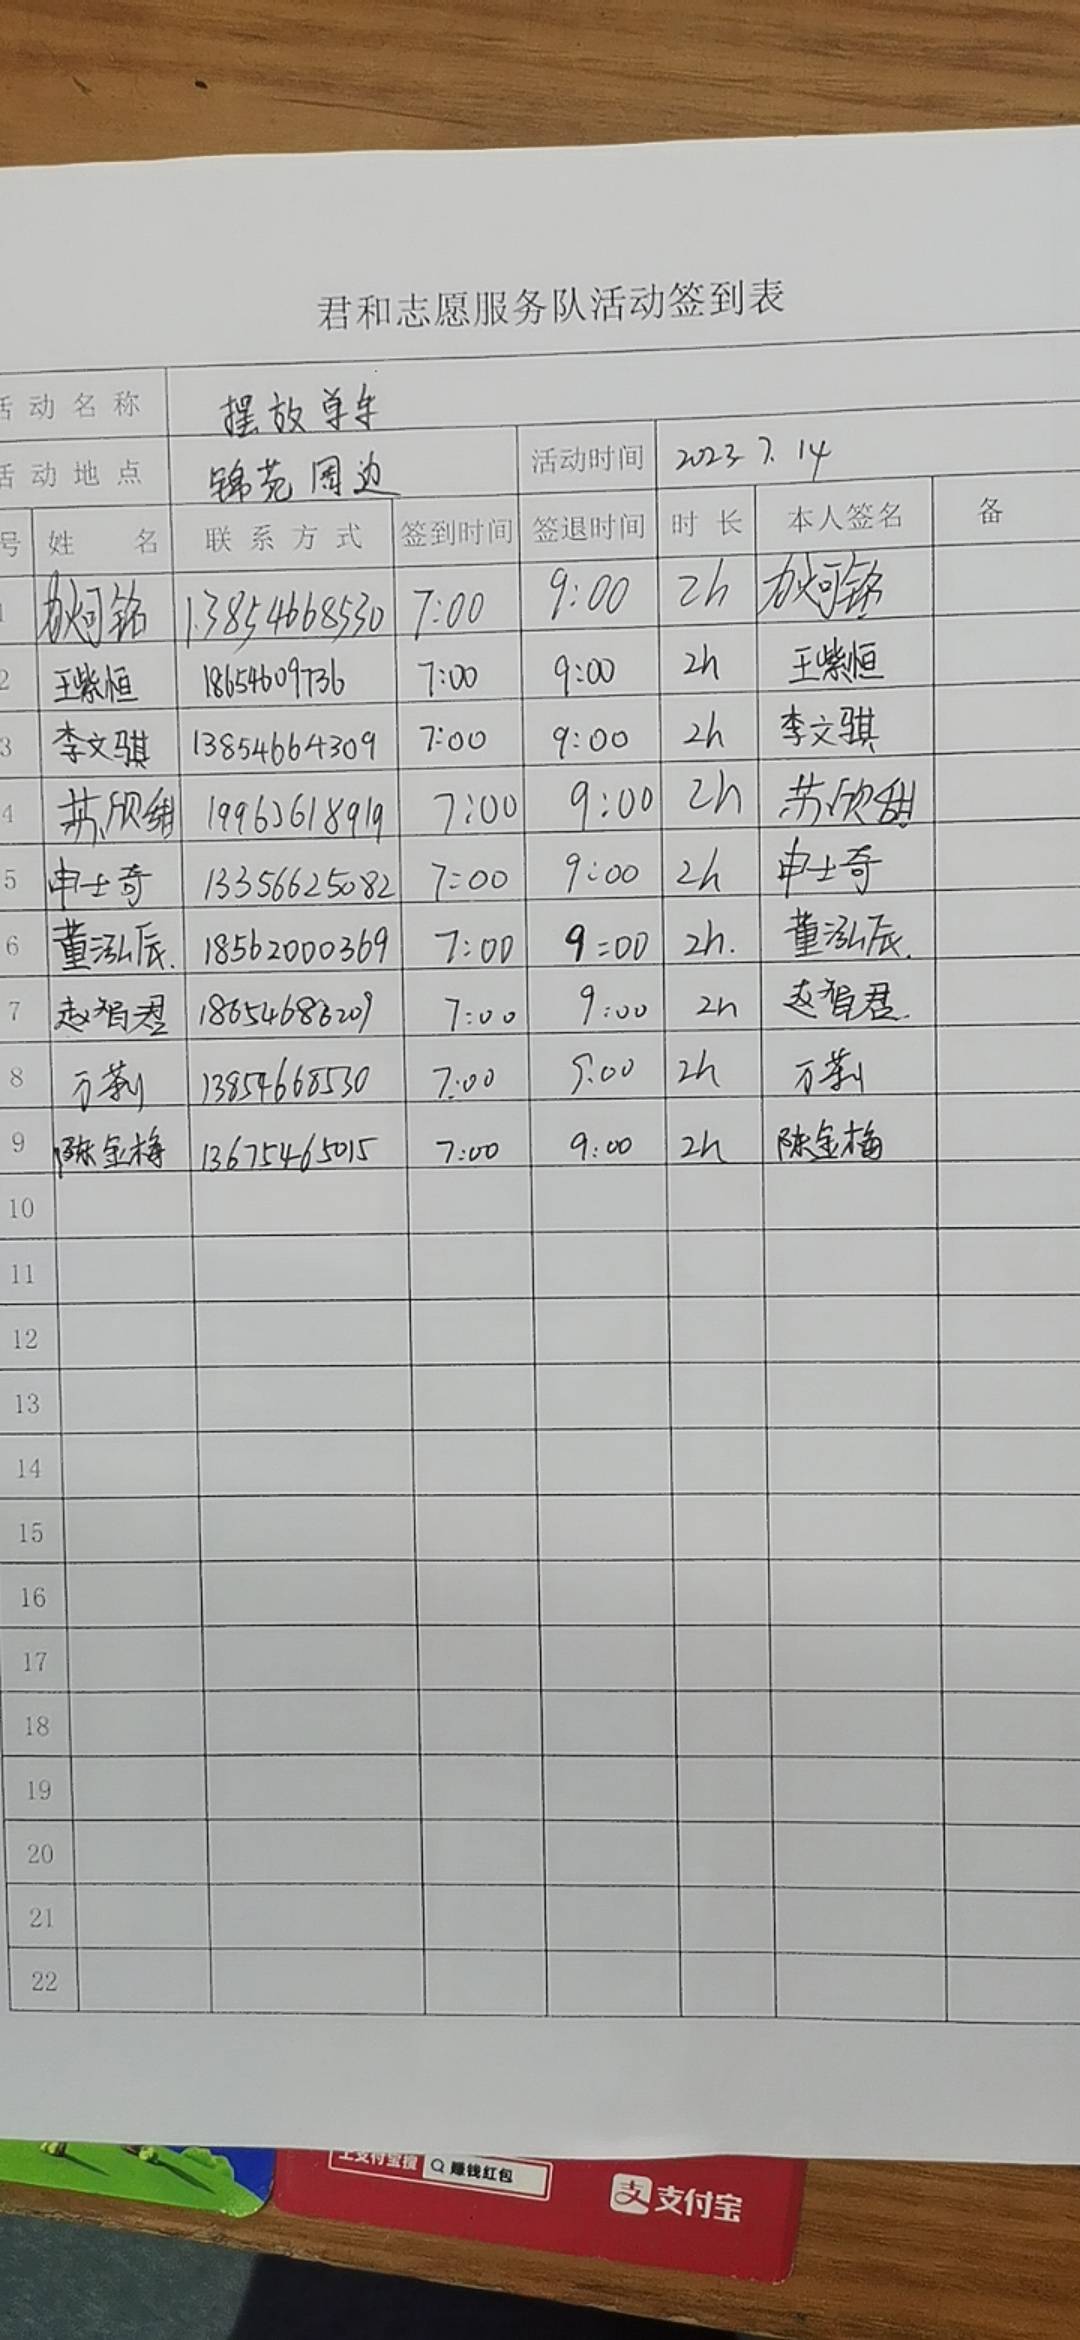 君和志愿服务队活动签到表
活动名称 摆放单车
活动地点 锦苑周边 活动时间 2023.7.14
号 姓名 联系方式 签到时间 签退时间 时长 本人签名 备
1 13854668530 7:00 9:00 2h
2 王紫恒 18654609736 7:00 9:00 2h 王紫恒
3 李文骐 13854664309 7:00 9:00 2h 李文骐
4 苏欣甜 19963618919 7:00 9:00 2h 苏欣甜
5 申士奇 13356625082 7:00 9:00 2h 申士奇
6 董泓辰. 18562000369 7:00 9:00 2h. 董泓辰.
7 赵智君 18654683209 7:00 9:00 2h 赵智君.
8 万莉 13854668530 7:00 9:00 2h 万莉
9 陈金梅 13675465015 7:00 9:00 2h 陈金梅
10
11
12
13
14
15
16
17
18
19
20
21
22
上支付宝搜 赚钱红包
支 支付宝